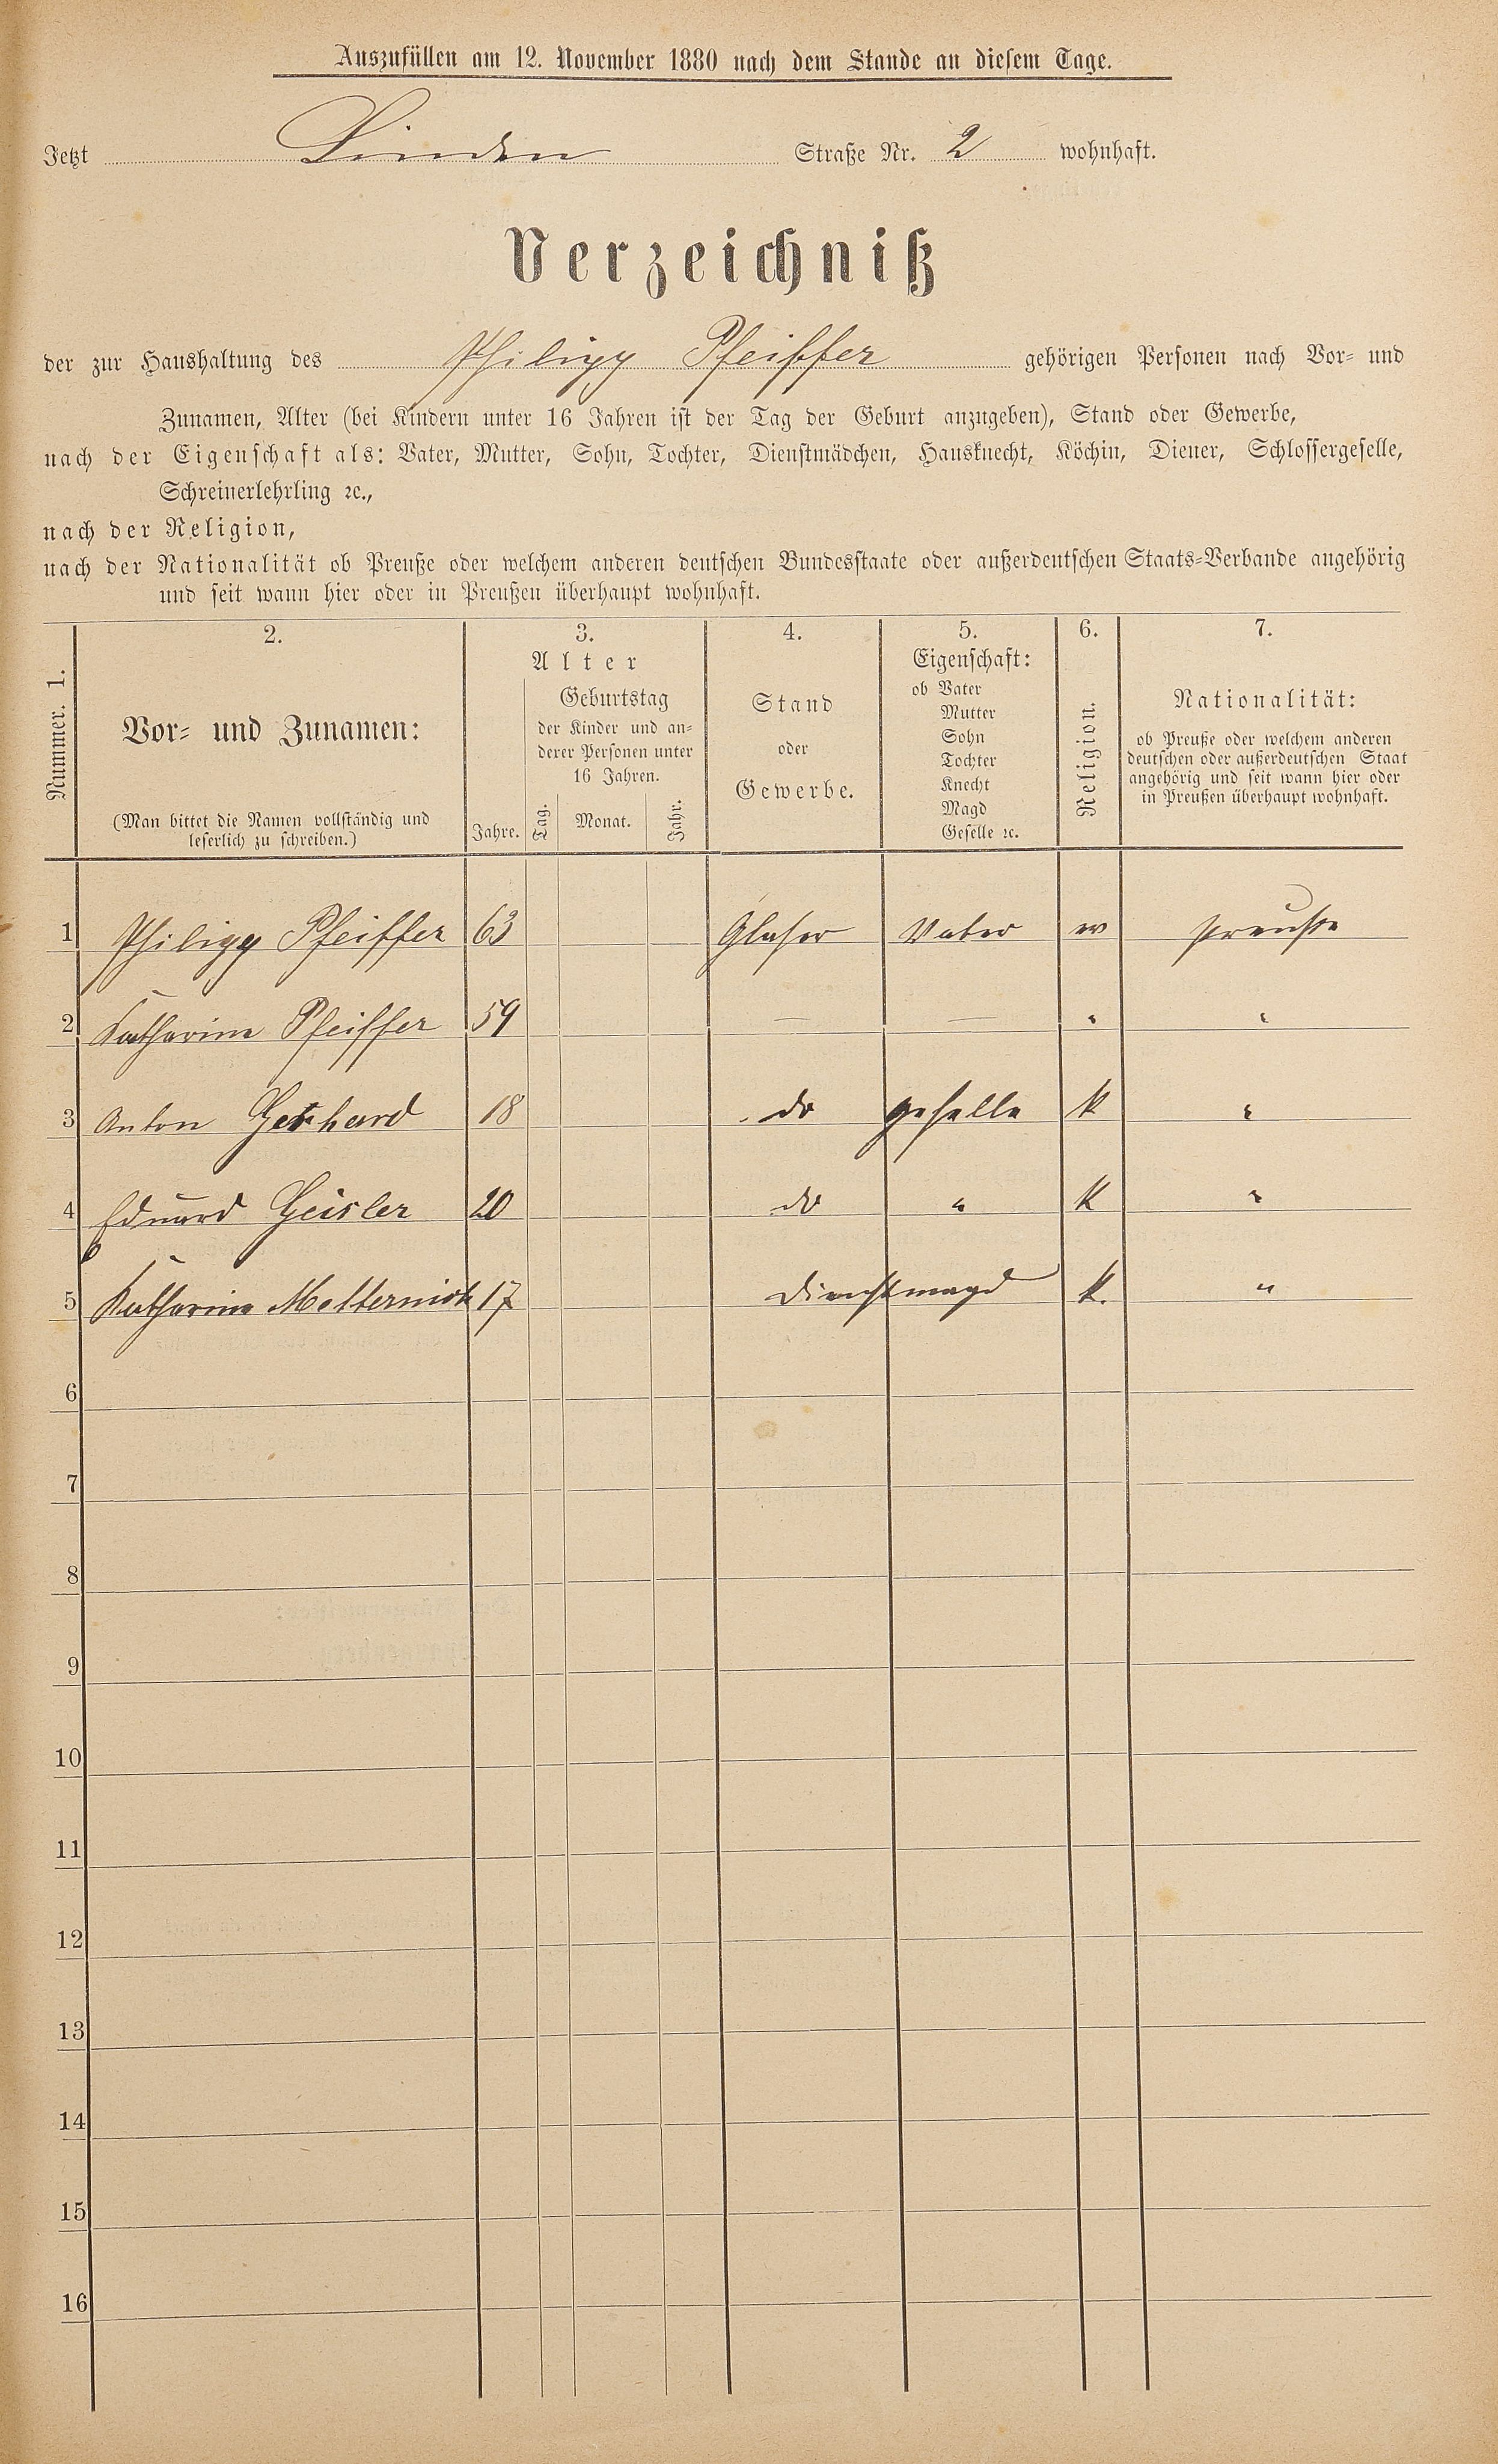 Auszufüllen am 12. November 1880 nach dem Stande an diesem Tage.
Jetzt Linden Straße Nr. 2 wohnhaft.
Verzeichniß
der zur Haushaltung des Philipp Pfeiffer gehörigen Personen nach Vor- und
Zunamen, Alter (bei Kindern unter 16 Jahren ist der Tag der Geburt anzugeben), Stand oder Gewerbe,
nach der Eigenschaft als: Vater, Mutter, Sohn, Tochter, Dienstmädchen, Hausknecht, Köchin, Diener, Schlossergeselle,
Schreinerlehrling ꝛc.,
nach der Religion,
nach der Nationalität ob Preuße oder welchem anderen deutschen Bundesstaate oder außerdeutschen Staats-Verbande angehörig
und seit wann hier oder in Preußen überhaupt wohnhaft.
Nummer. 1.
2.
Vor- und Zunamen:
(Man bittet die Namen vollständig und
leserlich zu schreiben.)
3.
Alter
Jahre.
Geburtstag
der Kinder und an-
derer Personen unter
16 Jahren.
Tag. Monat. Jahr.
4.
Stand
oder
Gewerbe.
5.
Eigenschaft:
ob Vater
Mutter
Sohn
Tochter
Knecht
Magd
Geselle ꝛc.
6.
Religion.
7.
Nationalität:
ob Preuße oder welchem anderen
deutschen oder außerdeutschen Staat
angehörig und seit wann hier oder
in Preußen überhaupt wohnhaft.
1 Philipp Pfeiffer 63 Glaser Vater ev preuße
2 Katharina Pfeiffer 59 — — " "
3 Anton Gerhard 18 do geselle k "
4 Eduard Geisler 20 do " k "
5 Katharina Metternich 17 Dienstmagd k. "
6
7
8
9
10
11
12
13
14
15
16